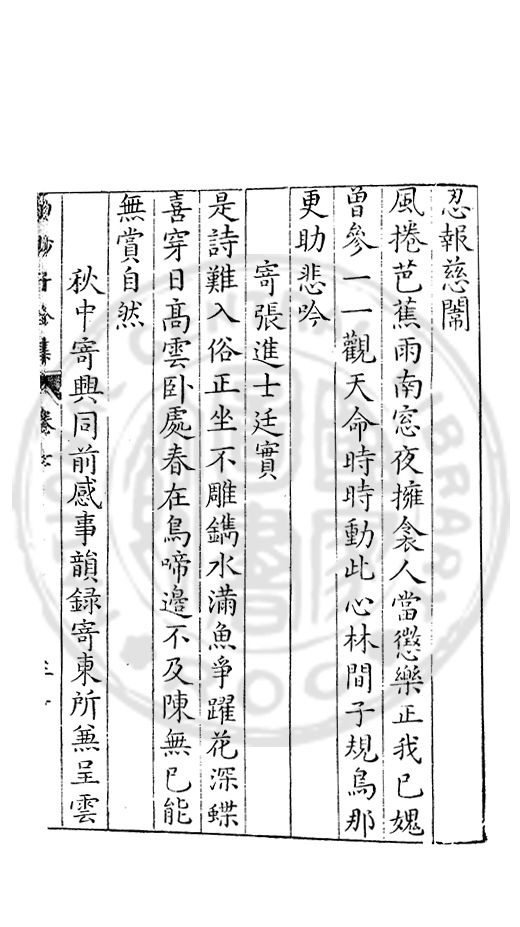 忍報慈闈
風捲芭蕉雨南窓夜擁衾人當懲樂正我已媿
曾參一一觀天命時時動此心林間子規鳥那
更助悲吟
寄張進士廷實
是詩難入俗正坐不雕鐫水滿魚爭躍花深蝶
喜穿日髙雲卧處春在鳥啼邊不及陳無已能
無賞自然
秋中寄興同前感事韻録寄東所兼呈雲